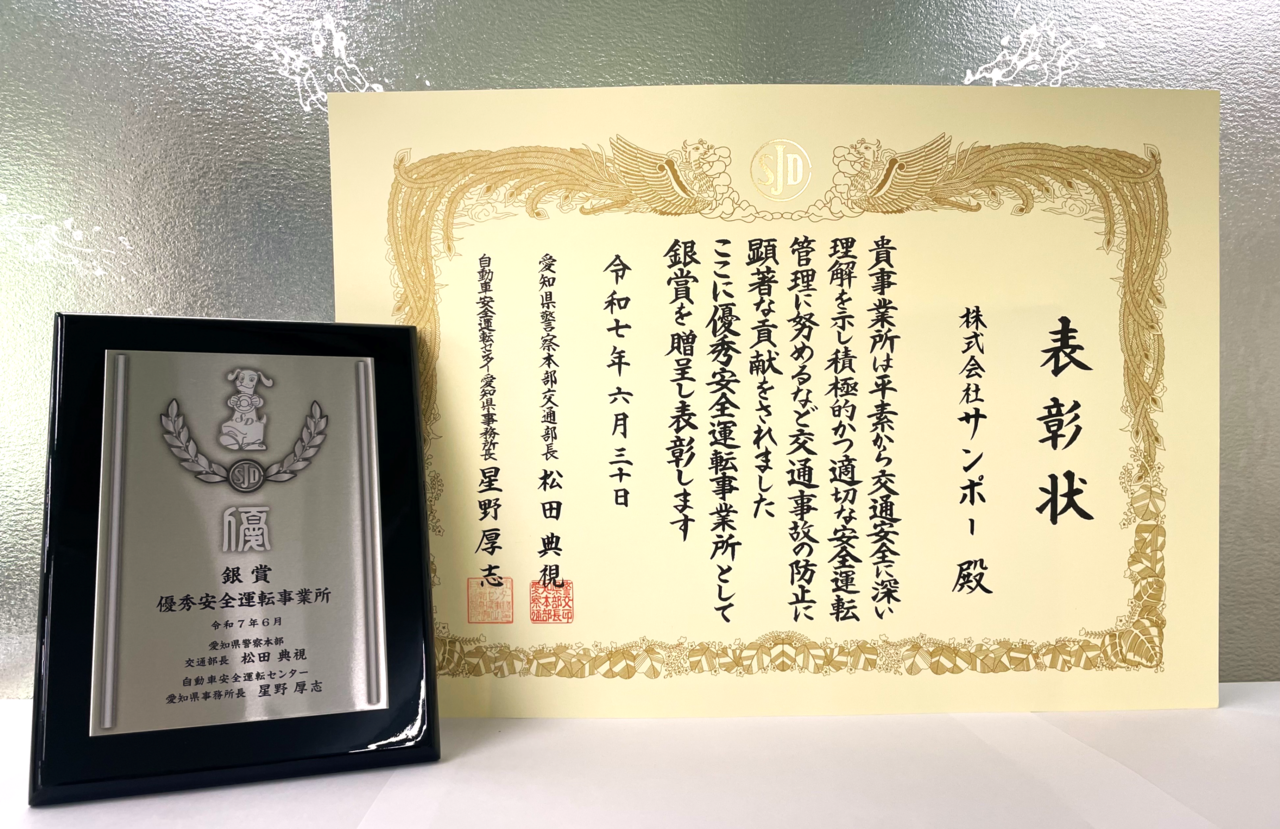 SJD
表彰状
株式会社サンポー 殿
貴事業所は平素から交通安全に深い
理解を示し積極的かつ適切な安全運転
管理に努めるなど交通事故の防止に
顕著な貢献をされました
ここに優秀安全運転事業所として
銀賞を贈呈し表彰します
令和七年六月三十日
愛知県警察本部交通部長 松田典視
自動車安全運転センター愛知県事務所長 星野厚志
SJD
優
銀賞
優秀安全運転事業所
令和7年6月
愛知県警察本部
交通部長 松田 典視
自動車安全運転センター
愛知県事務所長 星野 厚志